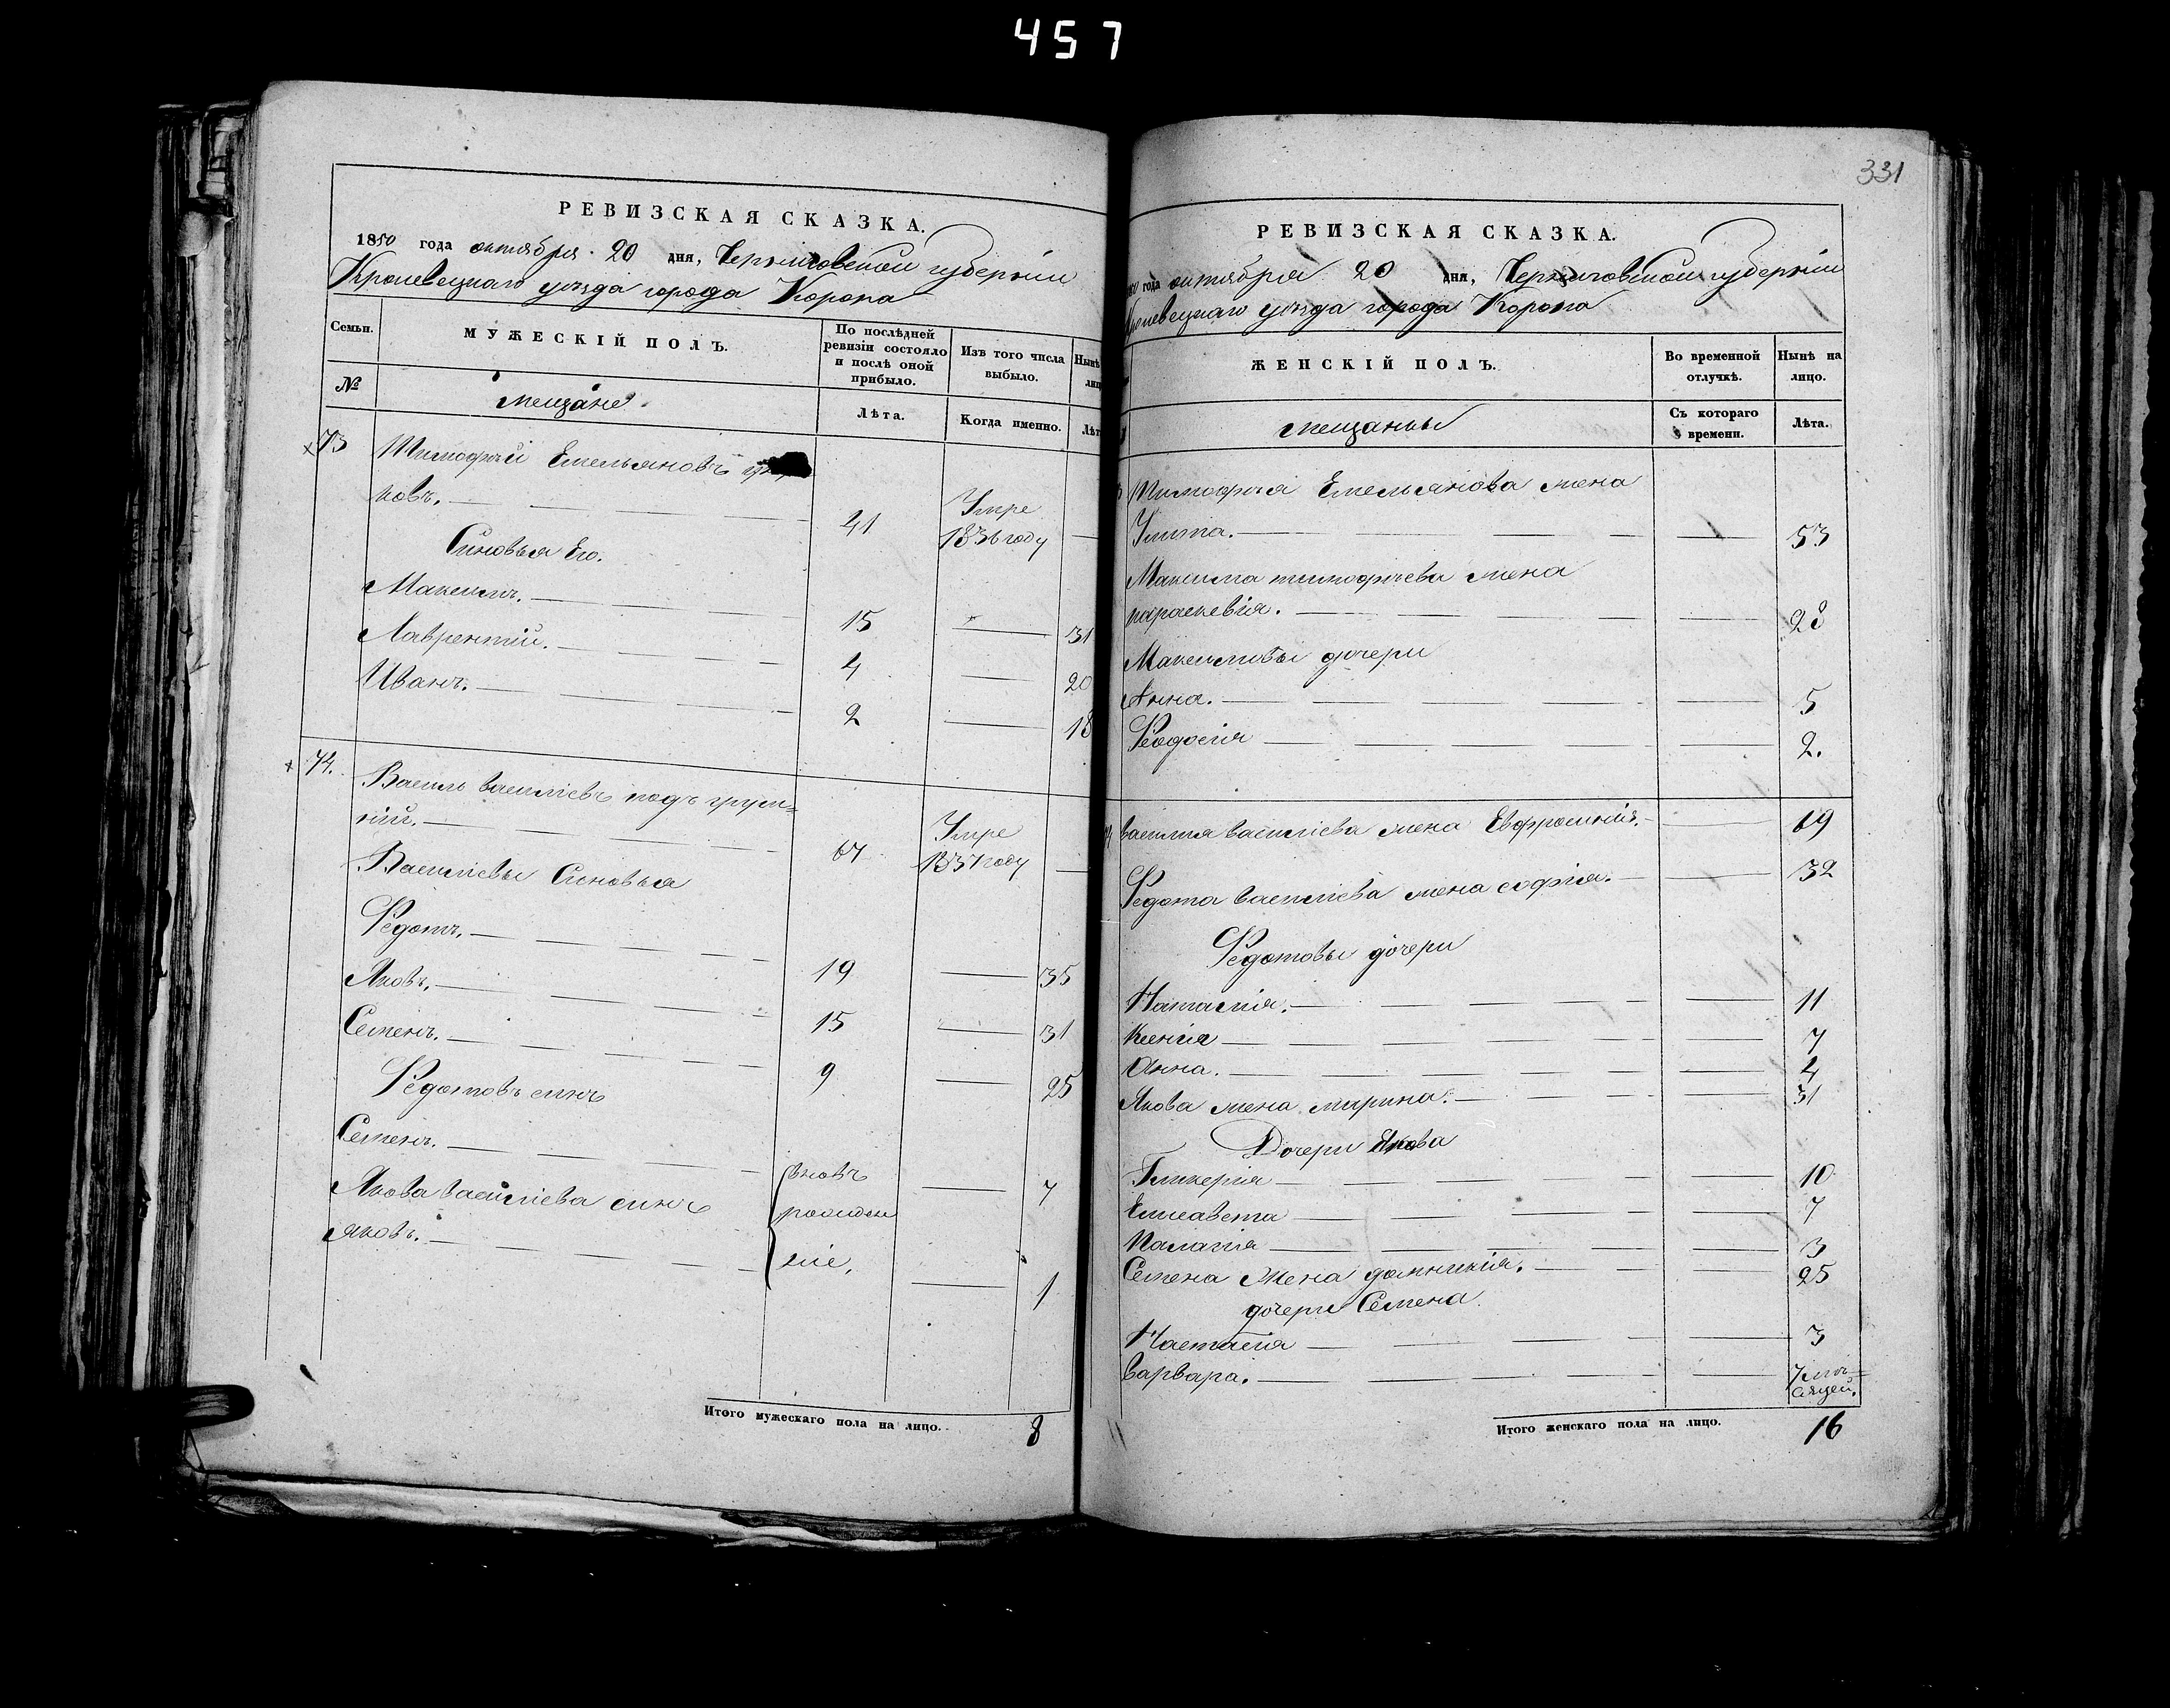 457
РЕВИЗСКАЯ СКАЗКА.
1850 года октября 20 дня, Черниговской губерніи
Кролевецкаго уѣзда города Коропа
Семьи.
МУЖЕСКІЙ ПОЛЪ.
По послѣдней ревизіи состояло и послѣ оной прибыло.
Изъ того числа выбыло.
Нынѣ
№
мещане.
Лѣта.
Когда именно.
Лѣт
73 Тимофѣй Емельяновъ
ковъ. 41 Умре 1836 году
Синовья Его.
Максимъ. 15 31
Лаврентій. 4 20
Иванъ. 2 18
74. Василь Василіевъ
кій. 67 Умре 1837 году
Василіевы Синовья
Федотъ. 19 35
Яковъ. 15 31
Семенъ. 9 25
Федотовъ синъ
Семенъ. 7
Якова Василіева синъ
яковъ. 1
вновь
рожден
ніе,
Итого мужескаго пола на лицо. 8
331
РЕВИЗСКАЯ СКАЗКА.
года октября 20 дня, Черниговской губерніи
Кролевецкаго уѣзда города Коропа
ЖЕНСКІЙ ПОЛЪ.
Во временной отлучкѣ.
Нынѣ на лицо.
мещанки
Съ котораго времени.
Лѣта.
Тимофѣя Емельянова жена
Улита. 53
Максима тимофѣева жена
параскевія. 28
Максимовы дочери
Анна. 5
Феодосия 2.
василия василіева жена Евфросинія. 69
Федота василіева жена софія. 32
Федотовы дочери
Наталия. 11
Ксения 7
Анна. 4
Якова жена марина. 31
Дочери Якова
Гликерия 10
Елисавета 7
Палагия 3
Семена жена домникія. 25
дочери Семена
Настасия 3
варвара. 7 мѣ-
сяцей.
Итого женскаго пола на лицо. 16